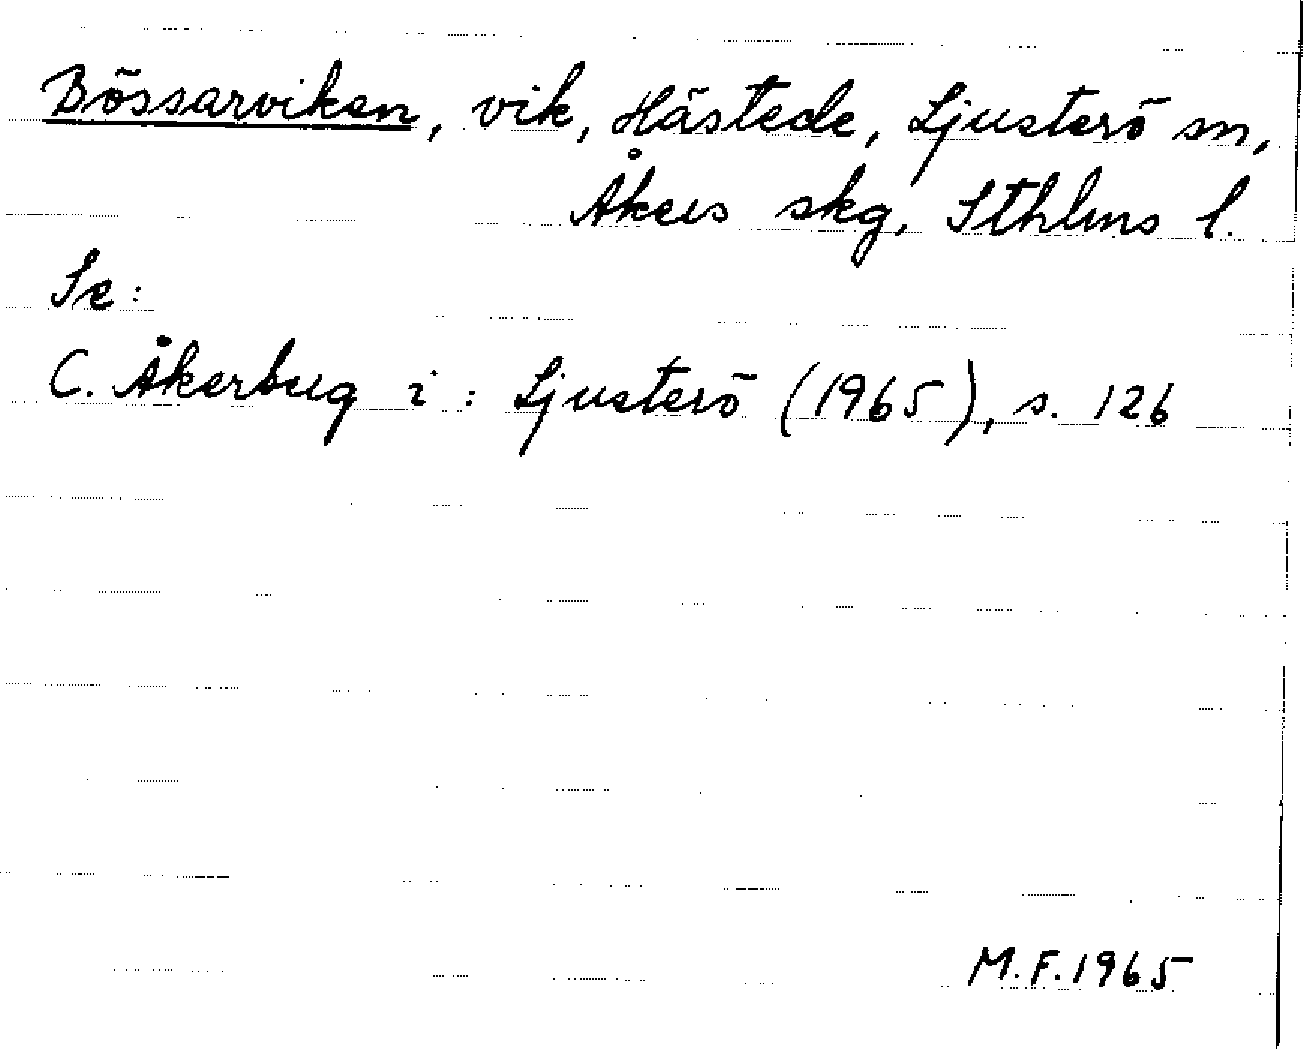 Bössarviken, vik, Hästede, Ljusterö sn,
Åkers skg, Sthlms l.
Se:
C. Åkerberg i: Ljusterö (1965), s. 126
M.F. 1965